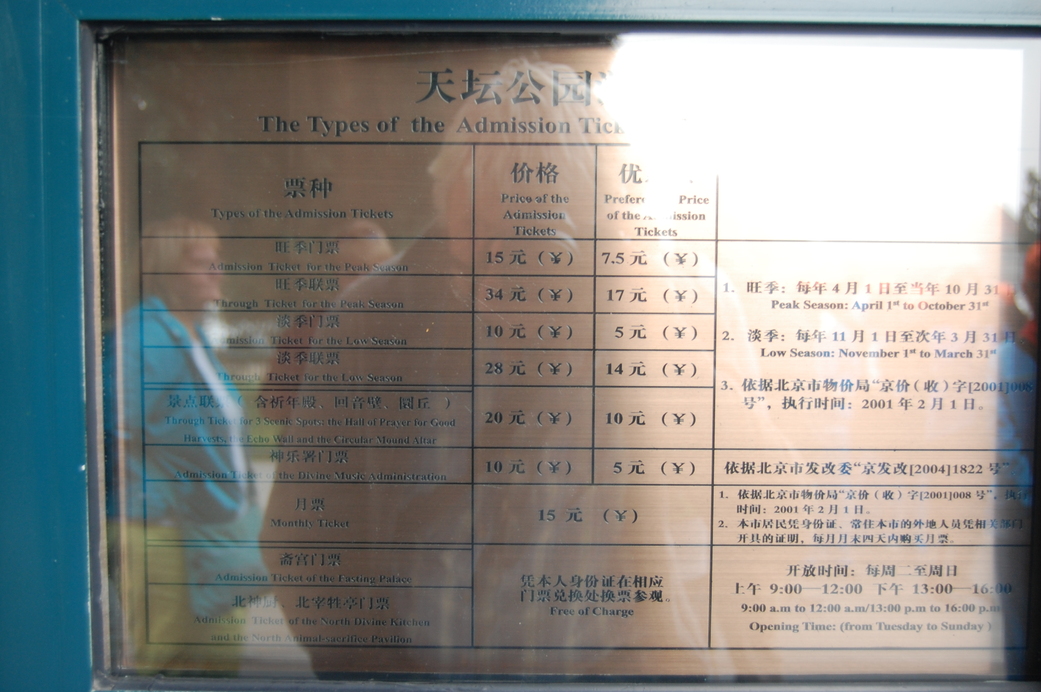 天坛公园
The Types of the Admission
票种
Types of the Admission Tickets
价格
Price of the
Admission
Tickets
优
Price
of the
Tickets
旺季门票
Admission Ticket for the Peak Season
15 元 (¥)
7.5 元 (¥)
旺季联票
Through Ticket for the Peak Season
34 元 (¥)
17 元 (¥)
淡季门票
Ticket for the Low Season
10 元 (¥)
5 元 (¥)
淡季联票
Through Ticket for the Low Season
28 元 (¥)
14 元 (¥)
1. 旺季: 每年 4 月 1 日至当年 10 月 31
Peak Season: April 1st to October 31st
2. 淡季: 每年 11 月 1 日至次年 3 月 31 日
Low Season: November 1st to March 31st
3. 依据北京市物价局“京价(收)字[2001]008
号”, 执行时间: 2001 年 2 月 1 日。
景点联 ( 含祈年殿、回音壁、圜丘 )
Through Ticket for 3 Scenic Spots: the Hall of Prayer for Good
Harvests, the Echo Wall and the Circular Mound Altar
20 元 (¥)
10 元 (¥)
神乐署门票
Admission Ticket of the Divine Music Administration
10 元 (¥)
5 元 (¥)
依据北京市发改委“京发改[2004]1822 号”
月票
Monthly Ticket
15 元 (¥)
1. 依据北京市物价局“京价(收)字[2001]008 号”, 执行
时间: 2001 年 2 月 1 日。
2. 本市居民凭身份证、常住本市的外地人员凭相关部门
开具的证明, 每月月末四天内购买月票。
斋宫门票
Admission Ticket of the Fasting Palace
北神厨、北宰牲亭门票
Admission Ticket of the North Divine Kitchen
and the North Animal-sacrifice Pavilion
凭本人身份证在相应
门票兑换处换票参观。
Free of Charge
开放时间: 每周二至周日
上午 9:00—12:00 下午 13:00—16:00
9:00 a.m to 12:00 a.m/13:00 p.m to 16:00 p.m
Opening Time: (from Tuesday to Sunday )